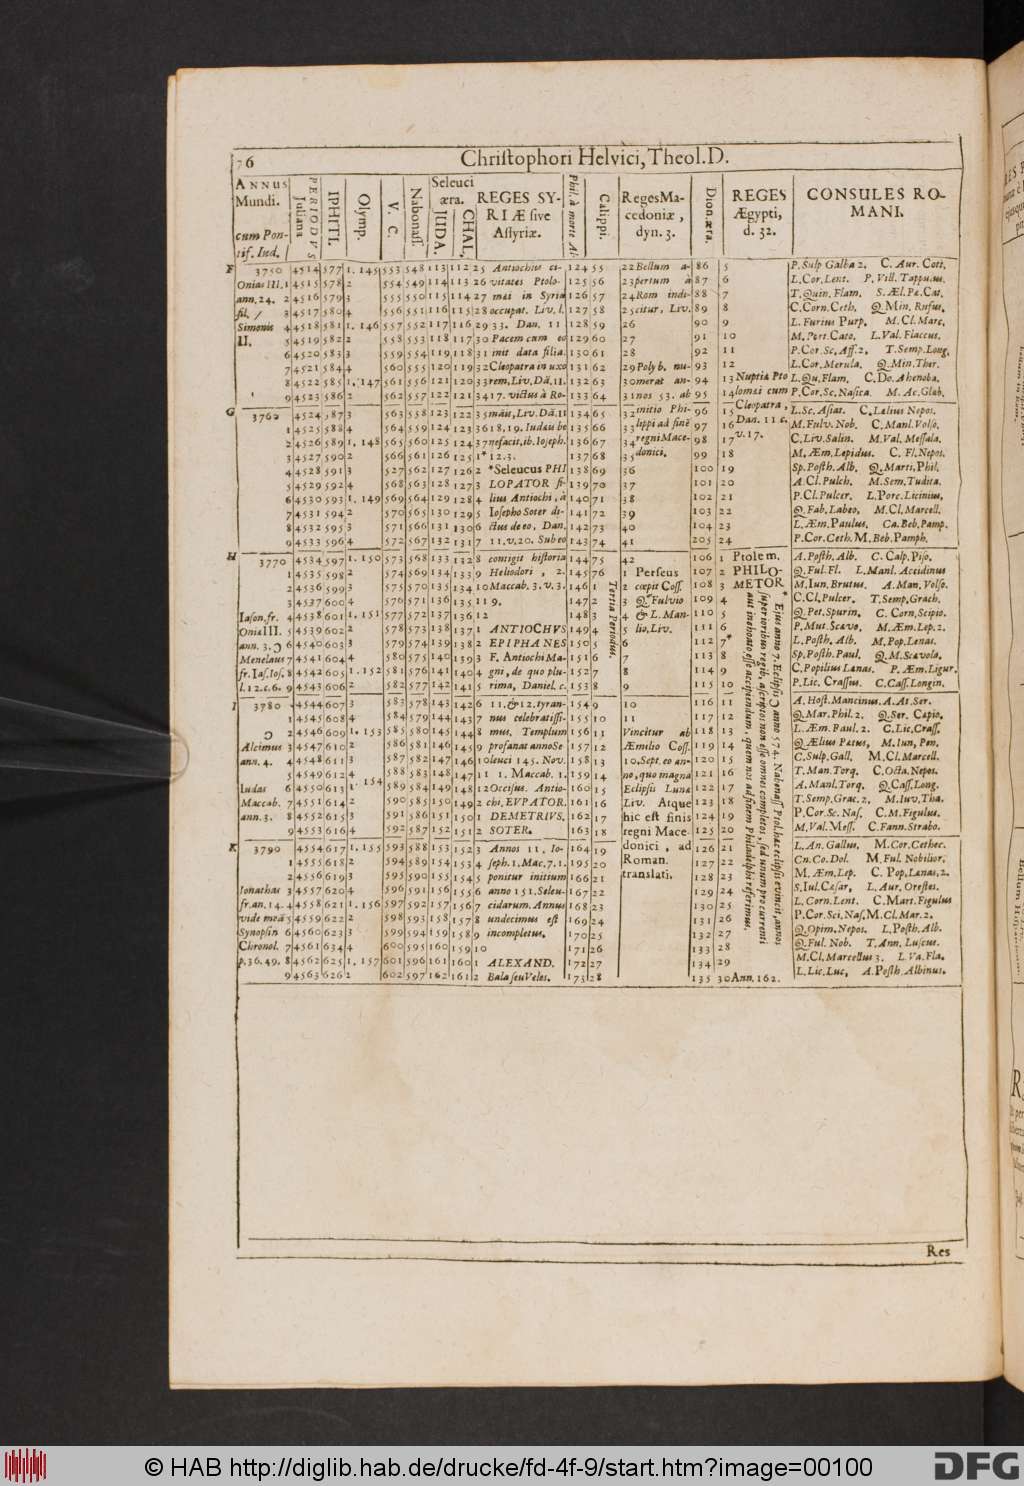 76 Christophori Helvici, Theol. D.
ANNUS Mundi. cum Pontif. Iud.
PERIODVS Juliana
IPHITI.
Olymp.
V. C.
Nabonass.
Seleuci æra.
IUDA.
CHAL.
REGES SYRIÆ sive Assyriæ.
Phil. à morte Al.
Calippi.
Reges Macedoniæ, dyn. 3.
Dion. æra.
REGES Ægypti, d. 32.
CONSULES ROMANI.
F 3750 4514 577 1. 145 553 548 113 112 25 Antiochus ci- 124 55 22 Bellum a- 86 5 P. Sulp Galba 2. C. Aur. Cott.
Onias III. 1 4515 578 2 554 549 114 113 26 vitates Ptolo- 125 56 23 pertum à 87 6 L. Cor. Lent. P. Vill. Tappuus.
ann. 24. 2 4516 579 3 555 550 115 114 27 mæi in Syria 126 57 24 Rom indi- 88 7 T. Quin. Flam. S. Æl. Pæ. Cat.
fil. 3 4517 580 4 556 551 116 115 28 occupat. Liv. l. 127 58 25 citur, Liv. 89 8 C. Corn. Ceth. Q. Min. Rufus.
Simonis 4 4518 581 1. 146 557 552 117 116 29 33. Dan. 11 128 59 26 90 9 L. Furius Purp. M. Cl. Marc.
II. 5 4519 582 2 558 553 118 117 30 Pacem cum eo 129 60 27 91 10 M. Port. Cato. L. Val. Flaccus.
6 4520 583 3 559 554 119 118 31 init data filia 130 61 28 92 11 P. Cor. Sc. Aff. 2. T. Semp. Long.
7 4521 584 4 560 555 120 119 32 Cleopatra in uxo 131 62 29 Polyb. nu- 93 12 L. Cor. Merula. Q. Min. Ther.
8 4522 585 1. 147 561 556 121 120 33 rem, Liv. Dã. 11. 132 63 30 merat an- 94 13 Nuptiæ Pto L. Qu. Flam. C. Do. Ahenoba.
9 4523 586 2 562 557 122 121 34 17. victus à Ro- 133 64 31 nos 53. ab 95 14 lomæi cum P. Cor. Sc. Nasica. M. Ac. Glab.
G 3760 4524 587 3 563 558 123 122 35 mãu, Liv. Dã. 11 134 65 32 initio Phi- 96 15 Cleopatra, L. Sc. Asiat. C. Lælius Nepos.
1 4525 588 4 564 559 124 123 36 18, 19. Iudæis be 135 66 33 lippi ad finẽ 97 16 Dan. 11 c. M. Fulv. Nob. C. Manl. Volso.
2 4526 589 1. 148 565 560 125 124 37 nefacit, ib. Ioseph. 136 67 34 regni Mace- 98 17 v. 17. C. Liv. Salin. M. Val. Messala.
3 4527 590 2 566 561 126 125 1* 12. 3. 137 68 35 donici. 99 18 M. Æm. Lepidus. C. Fl. Nepos.
4 4528 591 3 527 562 127 126 2 *Seleucus PHI 138 69 36 100 19 Sp. Posth. Alb. Q. Marti, Phil.
5 4529 592 4 568 563 128 127 3 LOPATOR fi- 139 70 37 101 20 A. Cl. Pulch. M. Sem. Tudita.
6 4530 593 1. 149 569 564 129 128 4 lius Antiochi, à 140 71 38 102 21 P. Cl. Pulcer. L. Porc. Licinius,
7 4531 594 2 570 565 130 129 5 Iosepho Soter di- 141 72 39 103 22 Q. Fab. Labeo, M. Cl. Marcell.
8 4532 595 3 571 566 131 130 6 ctus de eo, Dan. 142 73 40 104 23 L. Æm. Paulus. Ca. Beb. Pamp.
9 4533 596 4 572 567 132 131 7 11. v. 20. Sub eo 143 74 41 205 24 P. Cor. Ceth. M. Beb. Pamph.
H 3770 4534 597 1. 150 573 568 133 132 8 contigit historia 144 75 42 106 1 Ptolem. A. Posth. Alb. C. Calp. Piso.
1 4535 598 2 574 569 134 133 9 Heliodori, 2. 145 76 1 Perseus 107 2 PHILO- Q. Ful. Fl. L. Manl. Accidinus
2 4536 599 3 575 570 135 134 10 Maccab. 3. v. 3. 146 1 2 cœpit Coss. 108 3 METOR M. Iun. Brutus. A. Man. Volso.
3 4537 600 4 576 571 136 135 11 9. 147 2 3 Q. Fulvio 109 4 C. Cl. Pulcer. T. Semp. Grach.
Iason. fr. 4 4538 601 1. 151 577 572 137 136 12 148 3 4 & L. Man- 110 5 Q. Pet. Spurin. C. Corn. Scipio.
Oniæ III. 5 4539 602 2 578 573 138 137 1 ANTIOCHVS 149 4 5 lio, Liv. 151 6 P. Mut. Scævo. M. Æm. Lep. 2.
ann. 3. 6 4540 603 3 579 574 139 138 2 EPIPHANES 150 5 6 112 7* L. Posth. Alb. M. Pop. Lenas.
Menelaus 7 4541 604 4 580 575 140 139 3 F. Antiochi Ma- 151 6 7 113 8 Sp. Posth. Paul. Q. M. Scævola.
fr. Ias. Ios. 8 4542 605 1. 152 581 576 141 140 4 gni, de quo plu- 152 7 8 114 9 C. Popilius Lænas. P. Æm. Ligur.
l. 12. c. 6. 9 4543 606 2 582 577 142 141 5 rima, Daniel. c. 153 8 9 115 10 P. Lic. Crassus. C. Cass. Longin.
Tertia Periodus.
* Ejus anno 7. Eclipsis ☽ anno 574. Nabonass Ptol. hæc eclipsis evincit, annos superioribus regib, ascriptos non esse omnes completos, sed unum pro currenti aut inchoato esse accipiendum, quem nos ad finem Philadelphi referimus.
I 3780 4544 607 3 583 578 143 142 6 11. & 12. tyran- 154 9 10 116 11 A. Host. Mancinus. A. At Ser.
1 4545 608 4 584 579 144 143 7 nus celebratissi- 155 10 11 117 12 Q. Mar. Phil. 2. Q. Ser. Cæpio.
☽ 2 4546 609 1. 153 585 580 145 144 8 mus. Templum 156 11 Vincitur ab 118 13 L. Æm. Paul. 2. C. Lic. Crass.
Alcimus 3 4547 610 2 586 581 146 145 9 profanat anno Se 157 12 Æmilio Coss. 119 14 Q. Ælius Pætus, M. Iun, Pen.
ann. 4. 4 4548 611 3 587 582 147 146 10 leuci 145. Nov. 158 13 10. Sept. eo an- 120 15 C. Sulp. Gall. M. Cl. Marcell.
5 4549 612 4 588 583 148 147 11 1. Maccab. 1. 159 14 no, quo magna 121 16 T. Man. Torq. C. Octa. Nepos.
Iudas 6 4550 613 1. 154 589 584 149 148 12 Occisus. Antio- 160 15 Eclipsis Lunæ 122 17 A. Manl. Torq. Q. Cass. Long.
Maccab. 7 4551 614 2 590 585 150 149 2 chi, EVPATOR. 161 16 Liv. Atque 123 18 T. Semp. Grac. 2. M. Iuv. Tha.
ann. 3. 8 4552 615 3 591 586 151 150 1 DEMETRIVS. 162 17 hic est finis 124 19 P. Cor. Sc. Nas. C. M. Figulus.
9 4553 616 4 592 587 152 151 2 SOTER. 163 18 regni Mace- 125 20 M. Val. Mess. C. Fann. Strabo.
K 3790 4554 617 1. 155 593 588 153 152 3 Annos 11. Io- 164 19 donici, ad 126 21 L. An. Gallus, M. Cor. Cethec.
1 4555 618 2 594 589 154 153 4 seph. 1, Mac. 7. 1. 195 20 Roman. 127 22 Cn. Co. Dol. M. Ful. Nobilior.
2 4556 619 3 595 590 155 154 5 ponitur initium 166 21 translati. 128 23 M. Æm. Lep. C. Pop. Lænas, 2.
Ionathas 3 4557 620 4 596 591 156 155 6 anno 151. Seleu- 167 22 129 24 S. Iul. Cæsar, L. Aur. Orestes.
fr. an. 14. 4 4558 621 1. 156 597 592 157 156 7 cidarum. Annus 168 23 130 25 L. Corn. Lent. C. Mart. Figulus
vide meã 5 4559 622 2 598 593 158 157 8 undecimus est 169 24 131 26 P. Cor. Sci. Nas. M. Cl. Mar. 2.
Synopsin 6 4560 623 3 599 594 159 158 9 incompletus. 170 25 132 27 Q. Opim. Nepos. L. Posth. Alb.
Chronol. 7 4561 634 4 600 595 160 159 10 171 26 133 28 Q. Ful. Nob. T. Ann. Luscus.
p. 36. 49. 8 4562 625 1. 157 601 596 161 160 1 ALEXAND. 172 27 134 29 M. Cl. Marcellus 3. L. Va. Fla.
9 4563 626 2 602 597 162 161 2 Bala seu Veles. 173 28 135 30 Ann. 162. L. Lic. Luc, A. Posth Albinus.
Res
© HAB http://diglib.hab.de/drucke/fd-4f-9/start.htm?image=00100
DFG